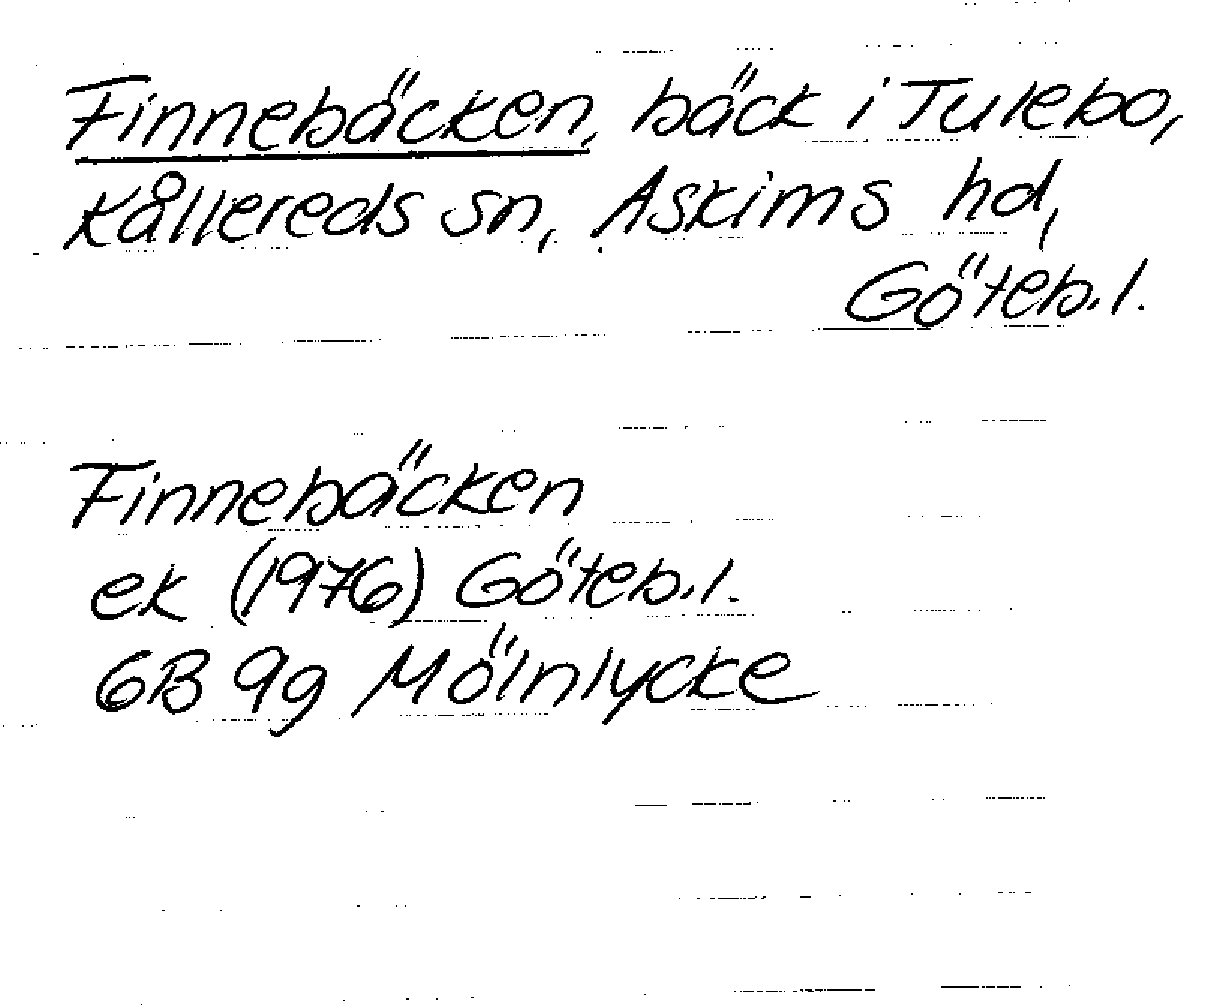 Finnebäcken, bäck i Tulebo,
Kållereds sn, Askims hd,
Göteb.l.
Finnebäcken
ek (1976) Göteb.l.
6B 9g Mölnlycke